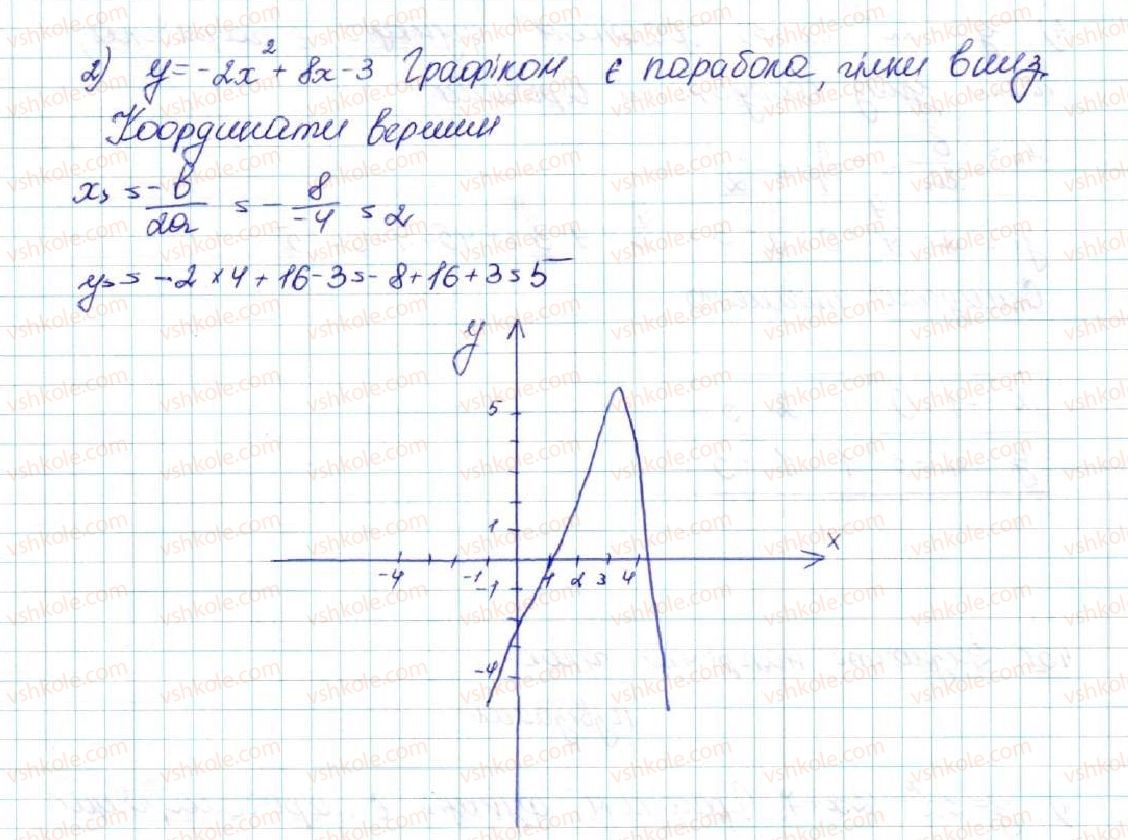 2) y = -2x² + 8x - 3 Графіком є парабола, гілки вниз.
Координати вершини
x₀ = -b/2a = -8/-4 = 2
y₀ = -2 × 4 + 16 - 3 = -8 + 16 + 3 = 5
y
5
1
x
-4 -1 1 2 3 4
-1
-4